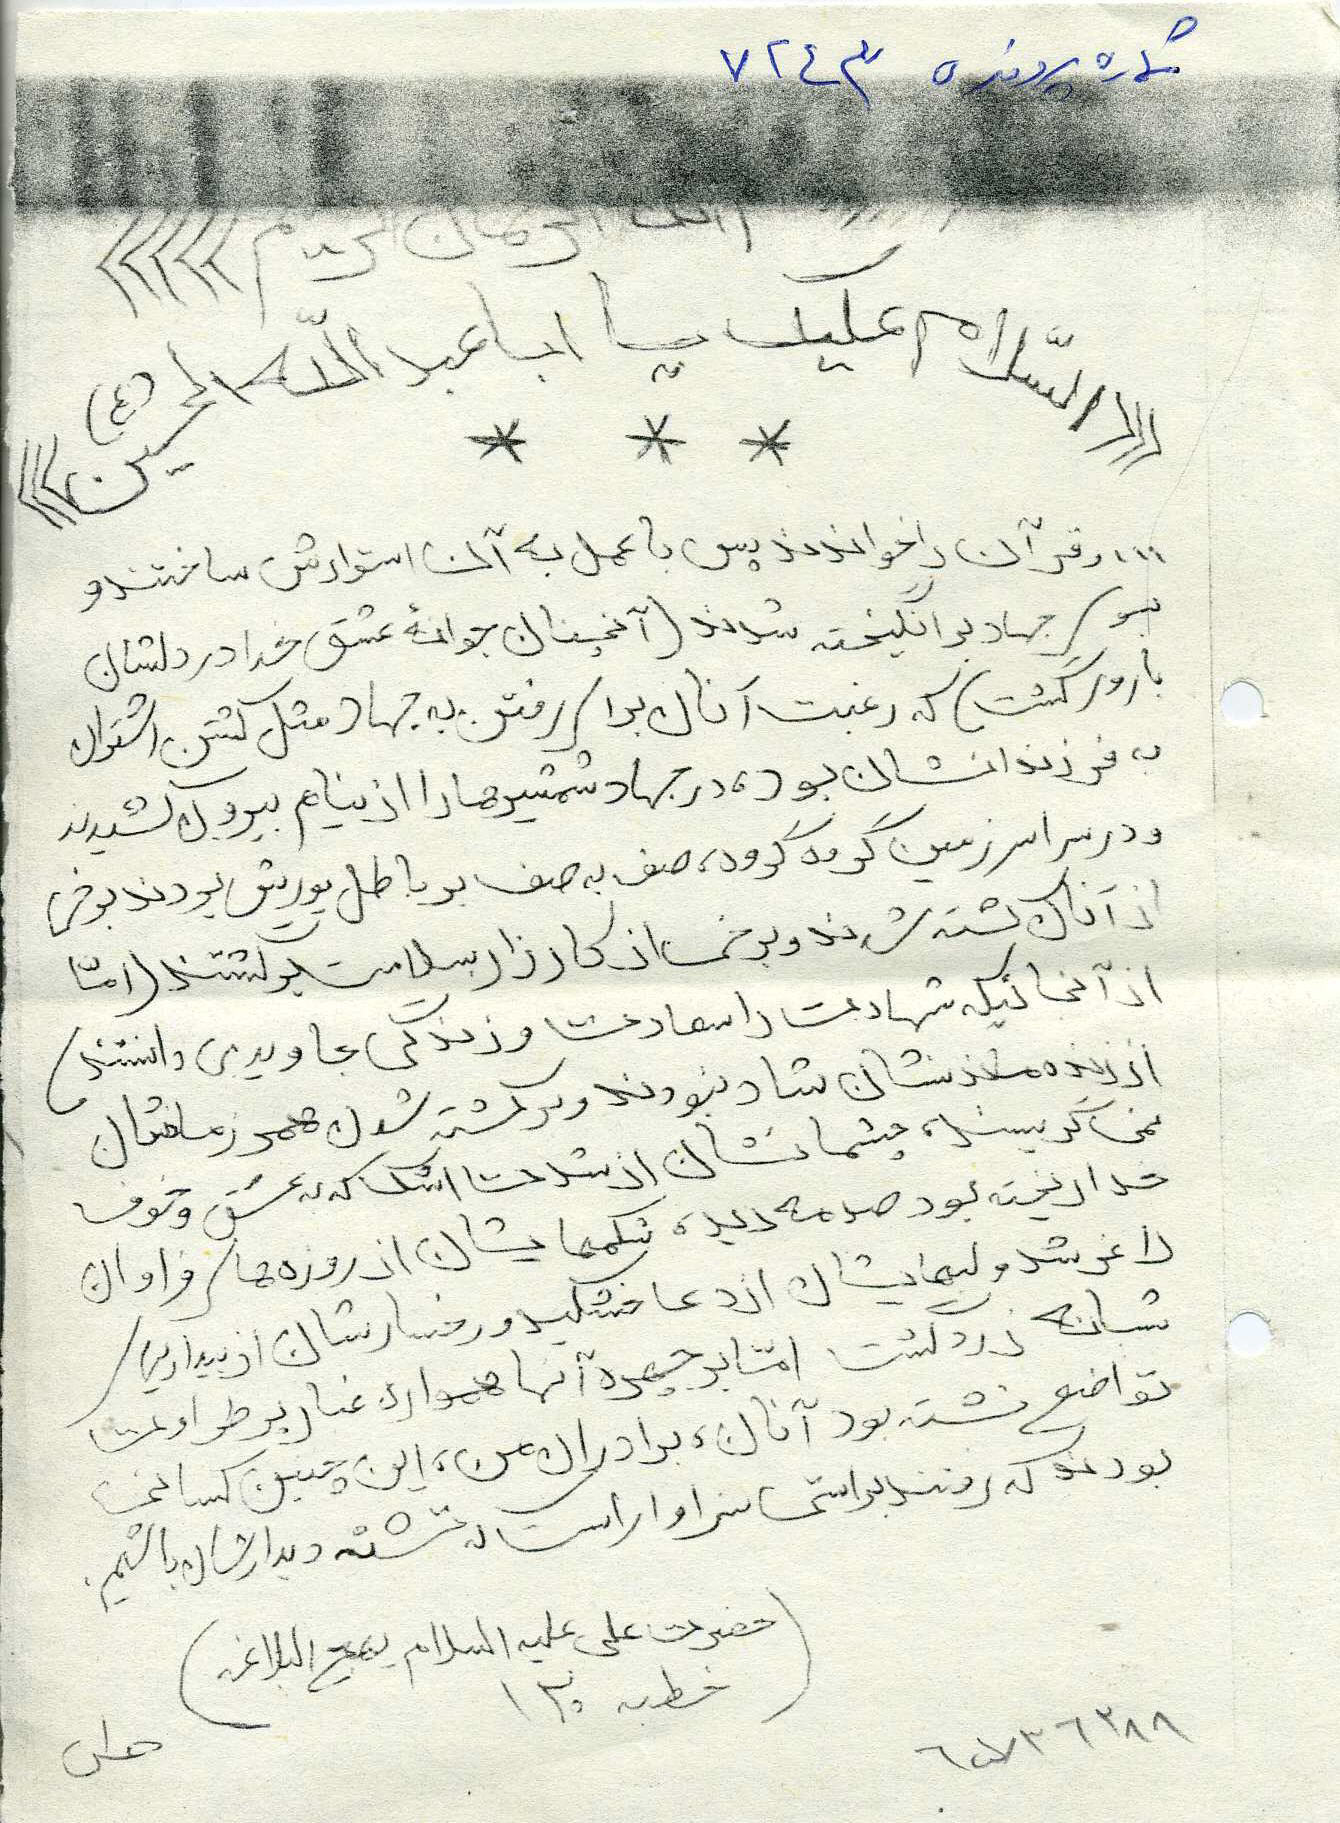 شماره پرونده ٧٢٤٣
الله الرحمان الرحیم »»»»
«««السّلام علیک یا ابا عبد اللّه الحسین (ع) »»»
* * *
... و قرآن را خواندند پس با عمل به آن استوارش ساختند و
بسوی جهاد برانگیخته شدند (آنچنان جوانهٔ عشق خدا در دلشان
بارور گشت) که رغبت آنان برای رفتن به جهاد مثل
به فرزندانشان بود، در جهاد شمشیرها را از نیام بیرون کشیدند
و در سراسر زمین گروه گروه، صف به صف بر باطل یورش بودند برخی
از آنان کشته شدند و برخی از کارزار سلامت برگشتند (امّا
از آنجائیکه شهادت را سعادت و زندگی جاویدی دانستند)
از زنده ماندنشان شاد نبودند و بر کشته شدن همرزمانشان
نمی گریستند، چشمانشان از شدت اشک که به عشق و خوف
خدا ریخته بود صدمه دیده، شکمهایشان از روزه های فراوان
لاغر شد و لبهایشان از دعا خشکید و رخسارشان از بیداریهای
شبانه زرد گشت امّا بر چهره آنها همواره غبار پر طراوت
تواضع نشسته بود آنان، برادران من، این چنین کسانی
بودند که رفتند براستی سزاوار است که تشنه دیدارشان باشیم.
(حضرت علی علیه السلام نهج البلاغه
خطبه ١٢٠)